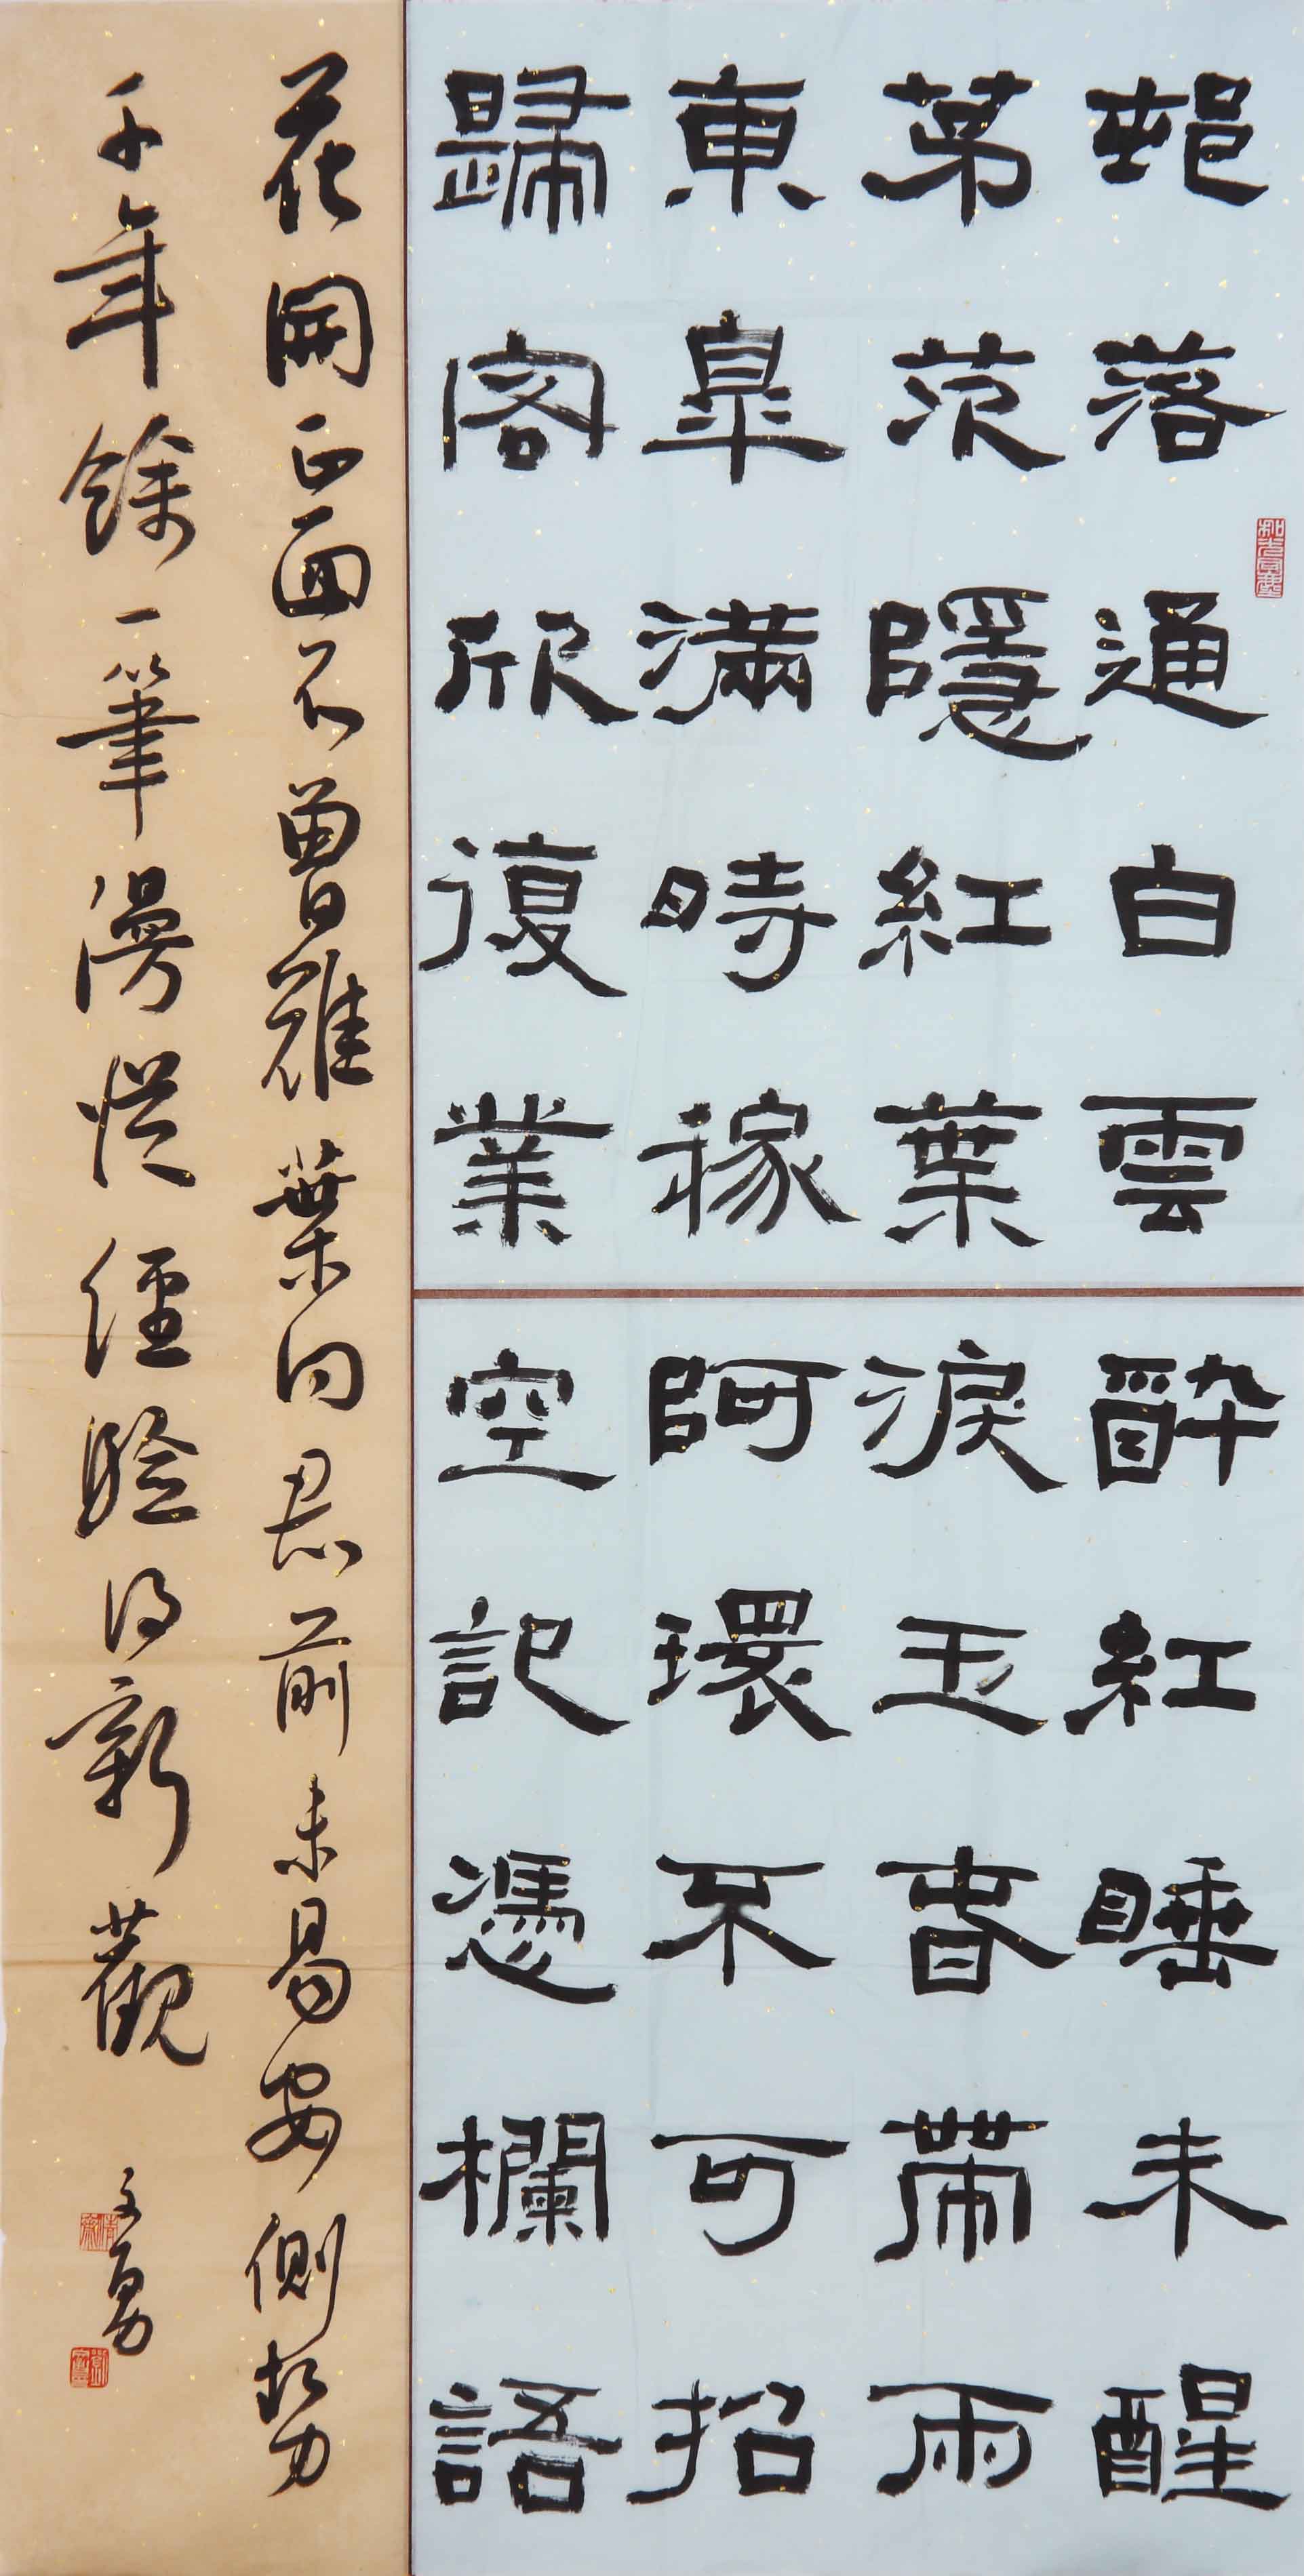 邨落通白雲
茅茨隱紅葉
東皋滿時稼
歸客欣復業
醉紅睡未醒
淚玉春帶雨
阿環不可招
空記憑欄語
花開正面不曾難葉向前未易安側勢
千年餘一筆漫從經驗得新觀 文勇